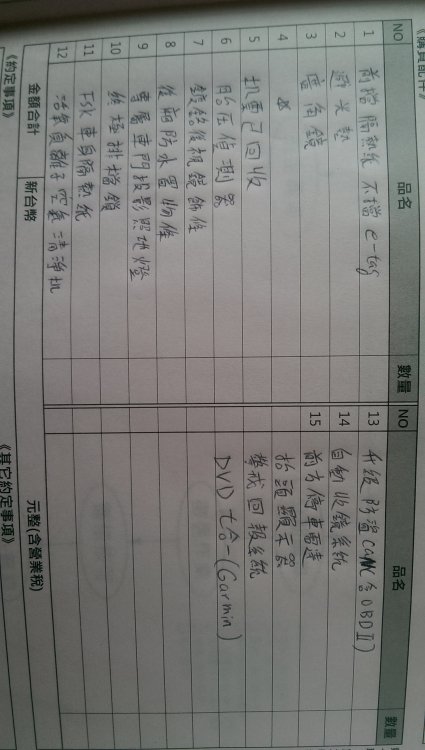 《購買配件》
NO 品名 數量 NO 品名 數量
1 前擋隔熱紙 不擋 e-tag
2 避光墊
3 廣角鏡
4
5 已回收
6 胎压偵測器
7 鍍鉻後視鏡飾條
8 後廂防水置物
9 專屬車門投影照地燈
10 排檔鎖
11 FSK 車身隔熱紙
12 活氧負離子空氣清淨机
13 升級防盜 CAN(含OBDII)
14 自動收鏡系統
15 前方停車雷達
抬頭顯示器
回報系統
DVD 七合一(Garmin)
金額合計 新台幣 元整(含營業稅)
《約定事項》 《其它約定事項》